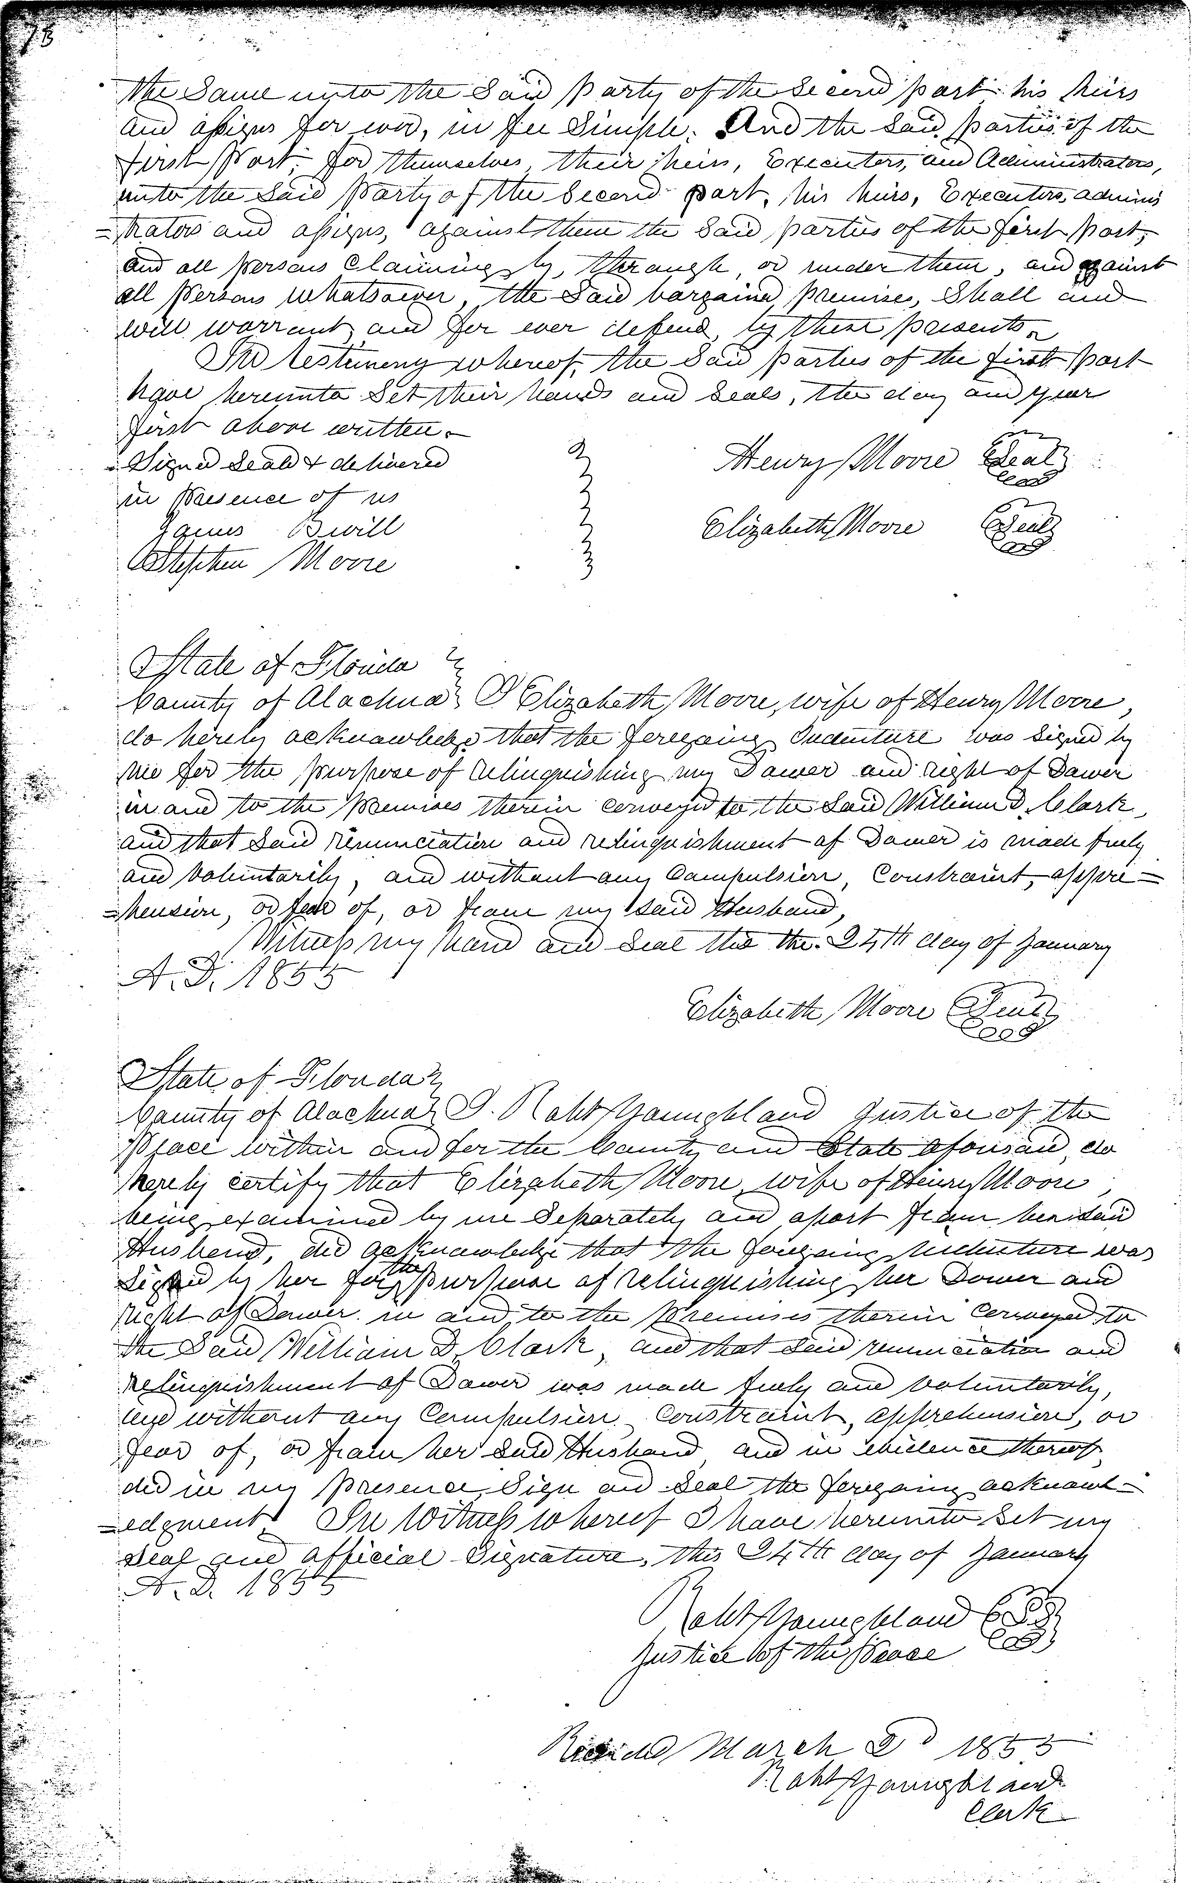 73
the Same unto the Said Party of the Second part his heirs
and assigns for ever, in fee Simple. And the Said parties of the
first Part, for themselves, their heirs, Executors, and Administrators,
unto the Said Party of the Second part, his heirs, Executors, adminis
=trators and assigns, against them the Said parties of the first Part,
and all persons claiming by, through, or under them, and against
all persons whatsoever, the Said bargained premises, Shall and
will warrant and for ever defend, by these presents.
In testimony whereof, the Said parties of the first part
have hereunto Set their hands and Seals, the day and year
first above written.
Signed Seald & delivered
in Presence of us
Henry Moore Seal
James Bevill
Elizabeth Moore Seal
Stephen Moore
State of Florida
County of Alachua I Elizabeth Moore, wife of Henry Moore,
do hereby acknowledge that the foregoing Indenture was Signed by
me for the purpose of relinquishing my Dower and right of Dower
in and to the premises therein conveyed to the Said William D. Clark,
and that Said renunciation and relinquishment of Dower is made freely
and voluntarily, and without any Compulsion, Constraint, appre=
=hension, or fear of, or from my said Husband,
Witness my hand and Seal this the 24th day of January
A.D. 1855
Elizabeth Moore Seal
State of Florida
County of Alachua I. Robt Youngbland Justice of the
Peace within and for the County and State aforesaid, do
hereby certify that Elizabeth Moore, wife of Henry Moore,
being examined by me Separately and apart from her said
Husband, did acknowledge that the foregoing Indenture was
Signed by her for the purpose of relinquishing her Dower and
right of Dower in and to the Premises therein Conveyed to
the Said William D. Clark, and that Said renunciation and
relinquishment of Dower was made freely and voluntarily,
and without any Compulsion, Constraint, apprehension, or
fear of, or from her Said Husband and in evidence thereof
did in my presence Sign and Seal the foregoing acknowl=
=edgment. In Witness whereof I have hereunto Set my
Seal and official Signature, this 24th day of January
A.D. 1855
Robt Youngbland
Justice of the Peace
March 2d 1855
Robt Youngbland
Clerk